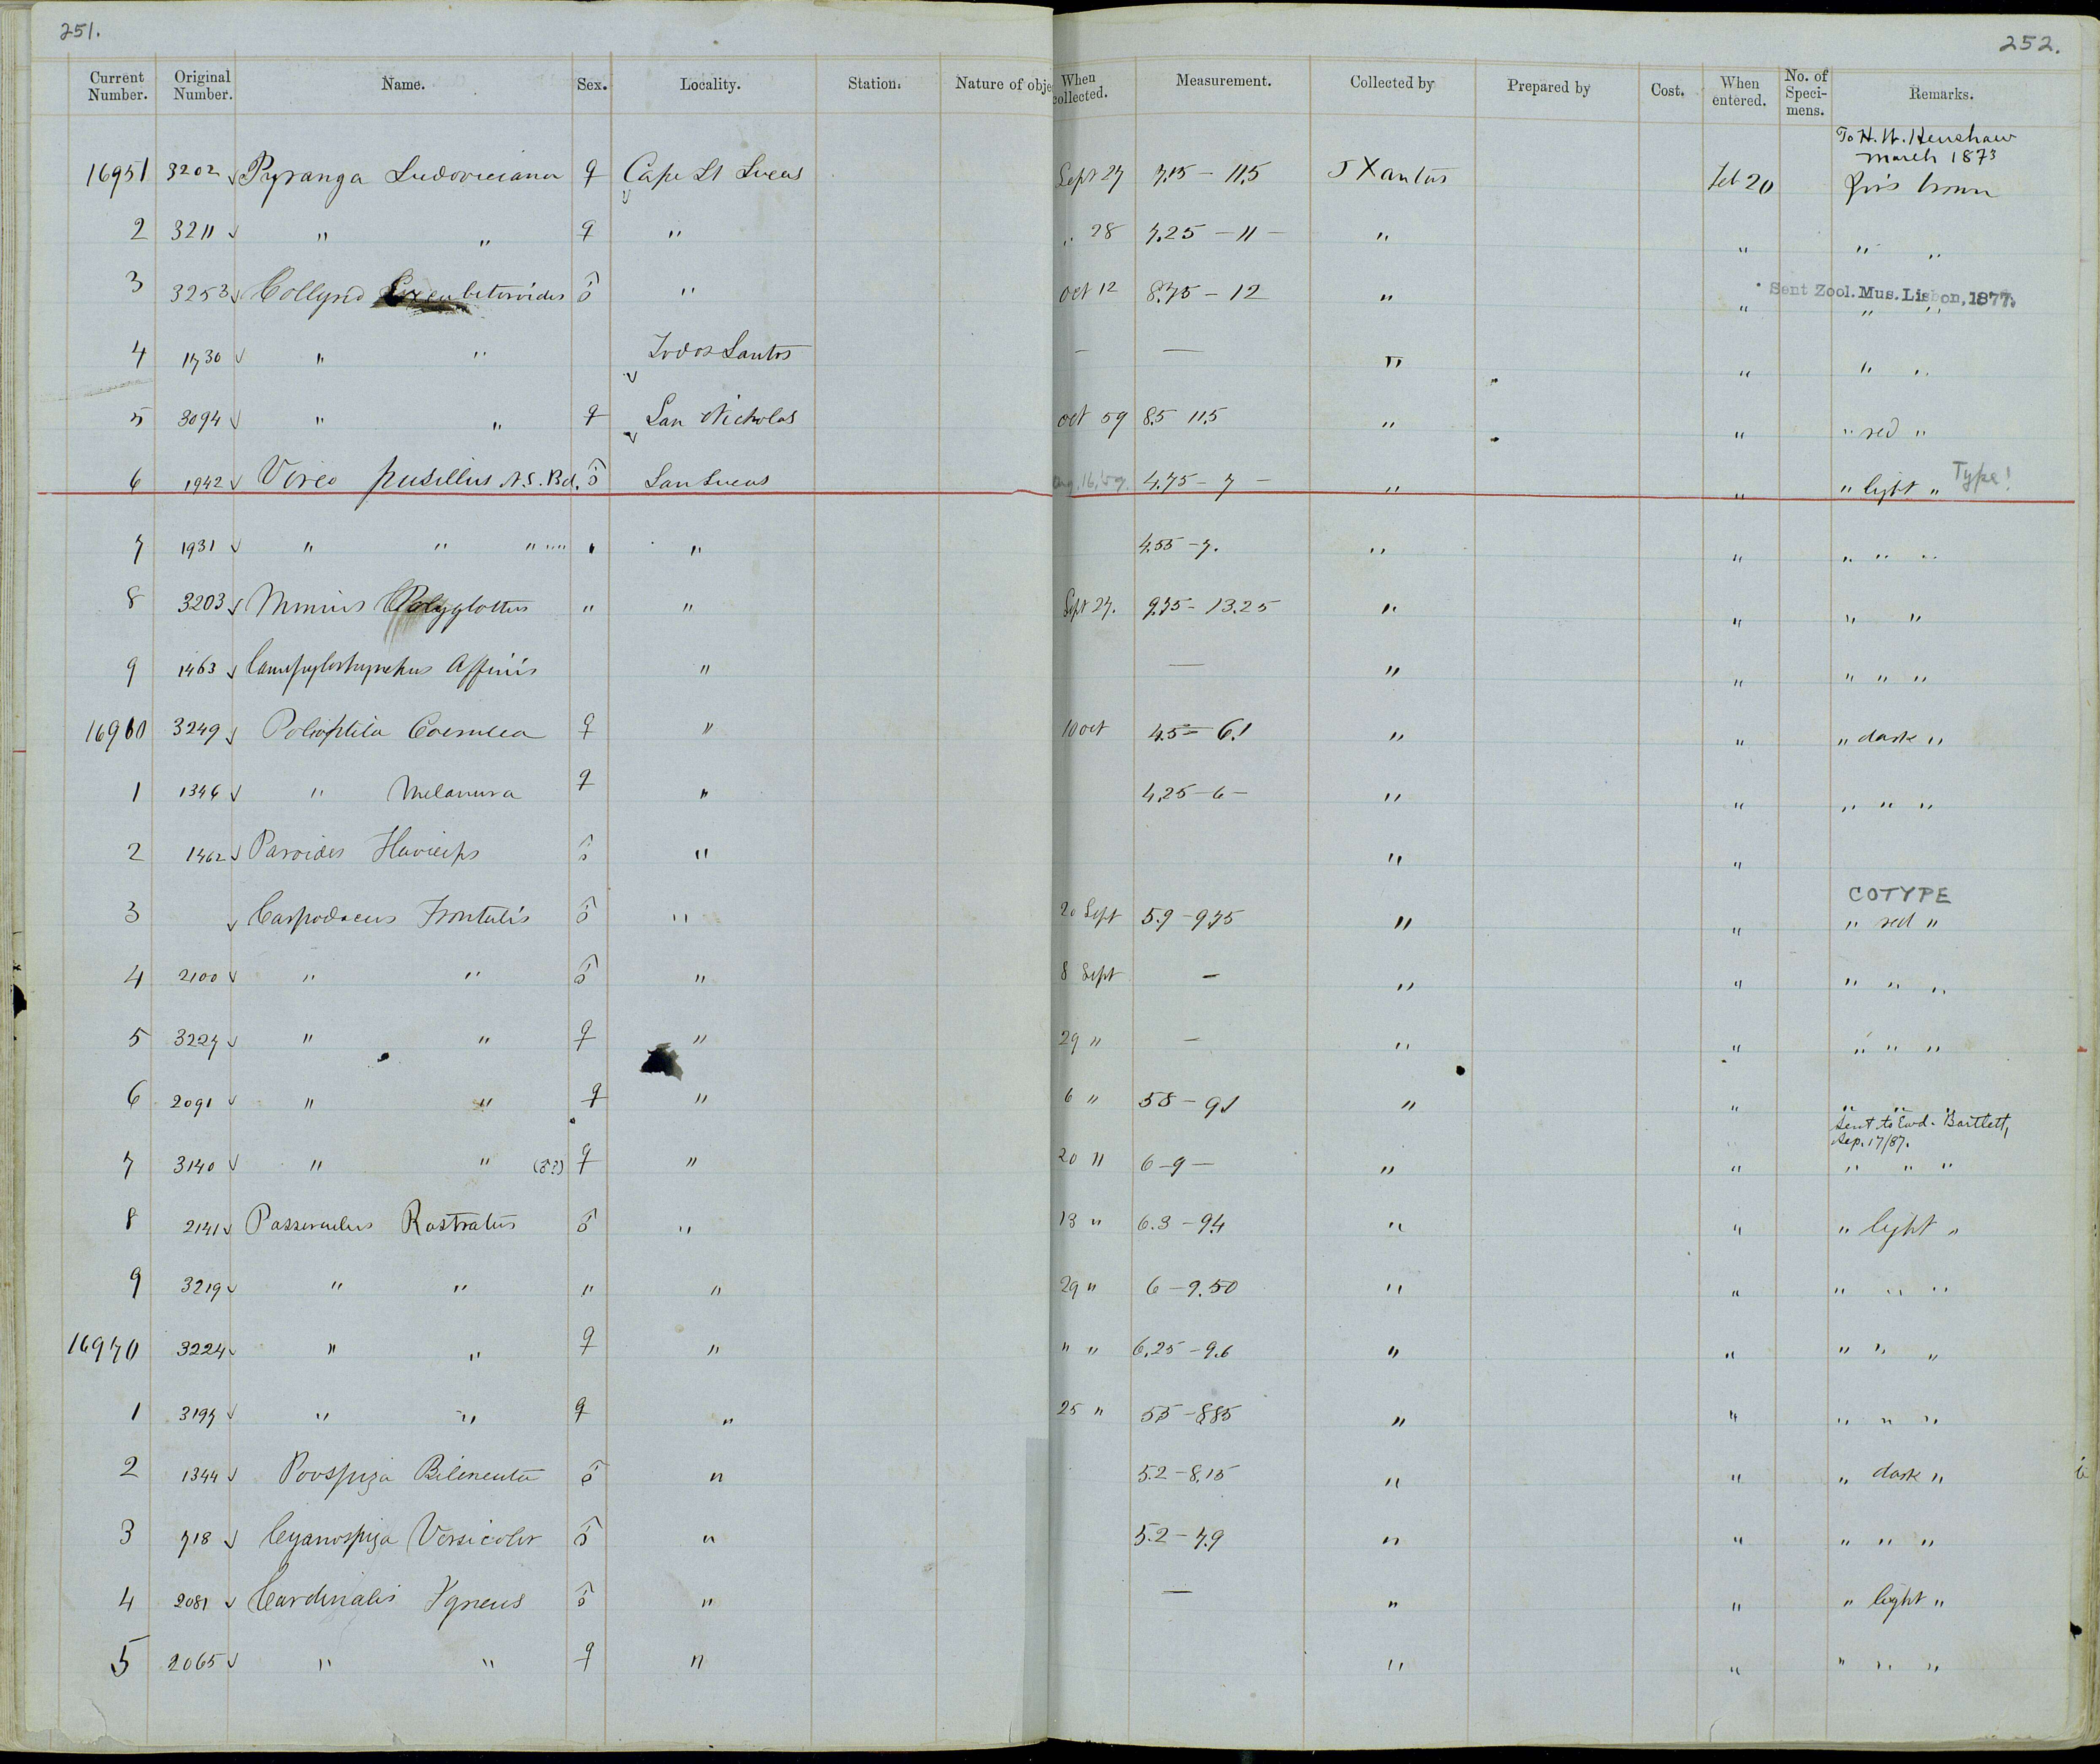 251.
252.
Current Number. Original Number. Name. Sex. Locality. Station. Nature of obje When collected. Measurement. Collected by Prepared by Cost. When entered. No. of Speci-mens. Remarks.
To H. W. Henshaw
March 1873
16951 3202 √ Pyranga Ludoviciana ♀ Cape St Lucas Sept 27 7.15 – 11.5 J Xantus Feb 20 Iris brown
2 3211 √ " " ♀ " " 28 7.25 – 11 – " " " "
3 3253 √ Collyrio Excubitoroides ♂ " Oct 12 8.75 – 12 " " Sent Zool. Mus. Lisbon, 1877. " "
4 1730 √ " " Todos Santos – — " " " "
5 3094 √ " " ♀ San Nicholas Oct 59 8.5 11.5 " " " red "
6 1942 √ Vireo pusillus N.S. Bd. ♂ San Lucas Aug, 16, '59. 4.75 – 7 – " " " light " Type!
7 1931 √ " " " " " " " 4.55 – 7. " " " " "
8 3203 √ Mimus Polyglottus " " Sept 27. 9.75 – 13.25 " " " "
9 1463 √ Campylorhynchus Affinis " — " " " " "
16960 3249 √ Polioptila Coerulea ♀ " 10 oct 4.5 – 6.1 " " " dark "
1 1346 √ " Melanura ♀ " 4.25 – 6 – " " " " "
2 1462 √ Paroides Flaviceps ♂ " " "
COTYPE
3 √ Carpodacus Frontalis ♂ " 20 Sept 5.9 – 9.75 " " " red "
4 2100 √ " " ♂ " 8 Sept – " " " " "
5 3227 √ " " ♀ " 29 " – " " " " "
6 2091 √ " " ♀ " 6 " 5.8 – 9.1 " " " " "
Sent to Ewd. Bartlett,
Sep. 17/87.
7 3140 √ " " (♂?) ♀ " 20 " 6 – 9 – " " " " "
8 2141 √ Passerculus Rostratus ♂ " 13 " 6.3 – 9.4 " " " light "
9 3219 √ " " " " 29 " 6 – 9.50 " " " " "
16970 3224 √ " " ♀ " " " 6.25 – 9.6 " " " " "
1 3197 √ " " ♀ " 25 " 5.5 – 8.85 " " " " "
2 1344 √ Poospiza Bilineata ♂ " 5.2 – 8.15 " " " dark "
3 718 √ Cyanospiza Versicolor ♂ " 5.2 – 7.9 " " " " "
4 2081 √ Cardinalis Igneus ♂ " — " " " light "
5 2065 √ " " ♀ " " " " " "